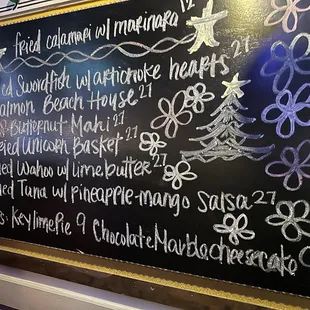 fried calamari w/ marinara 12
ed Swordfish w/ artichoke hearts 27
almon Beach House 27
Butternut Mahi 27
ied Unicorn Basket 27
ed Wahoo w/ lime butter 27
led Tuna w/ pineapple-mango salsa 27
s: Key lime Pie 9 Chocolate Marble cheesecake